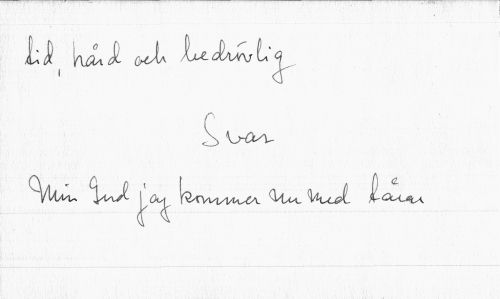 tid, hård och bedrövlig
Svar
Min Gud jag kommer nu med tårar